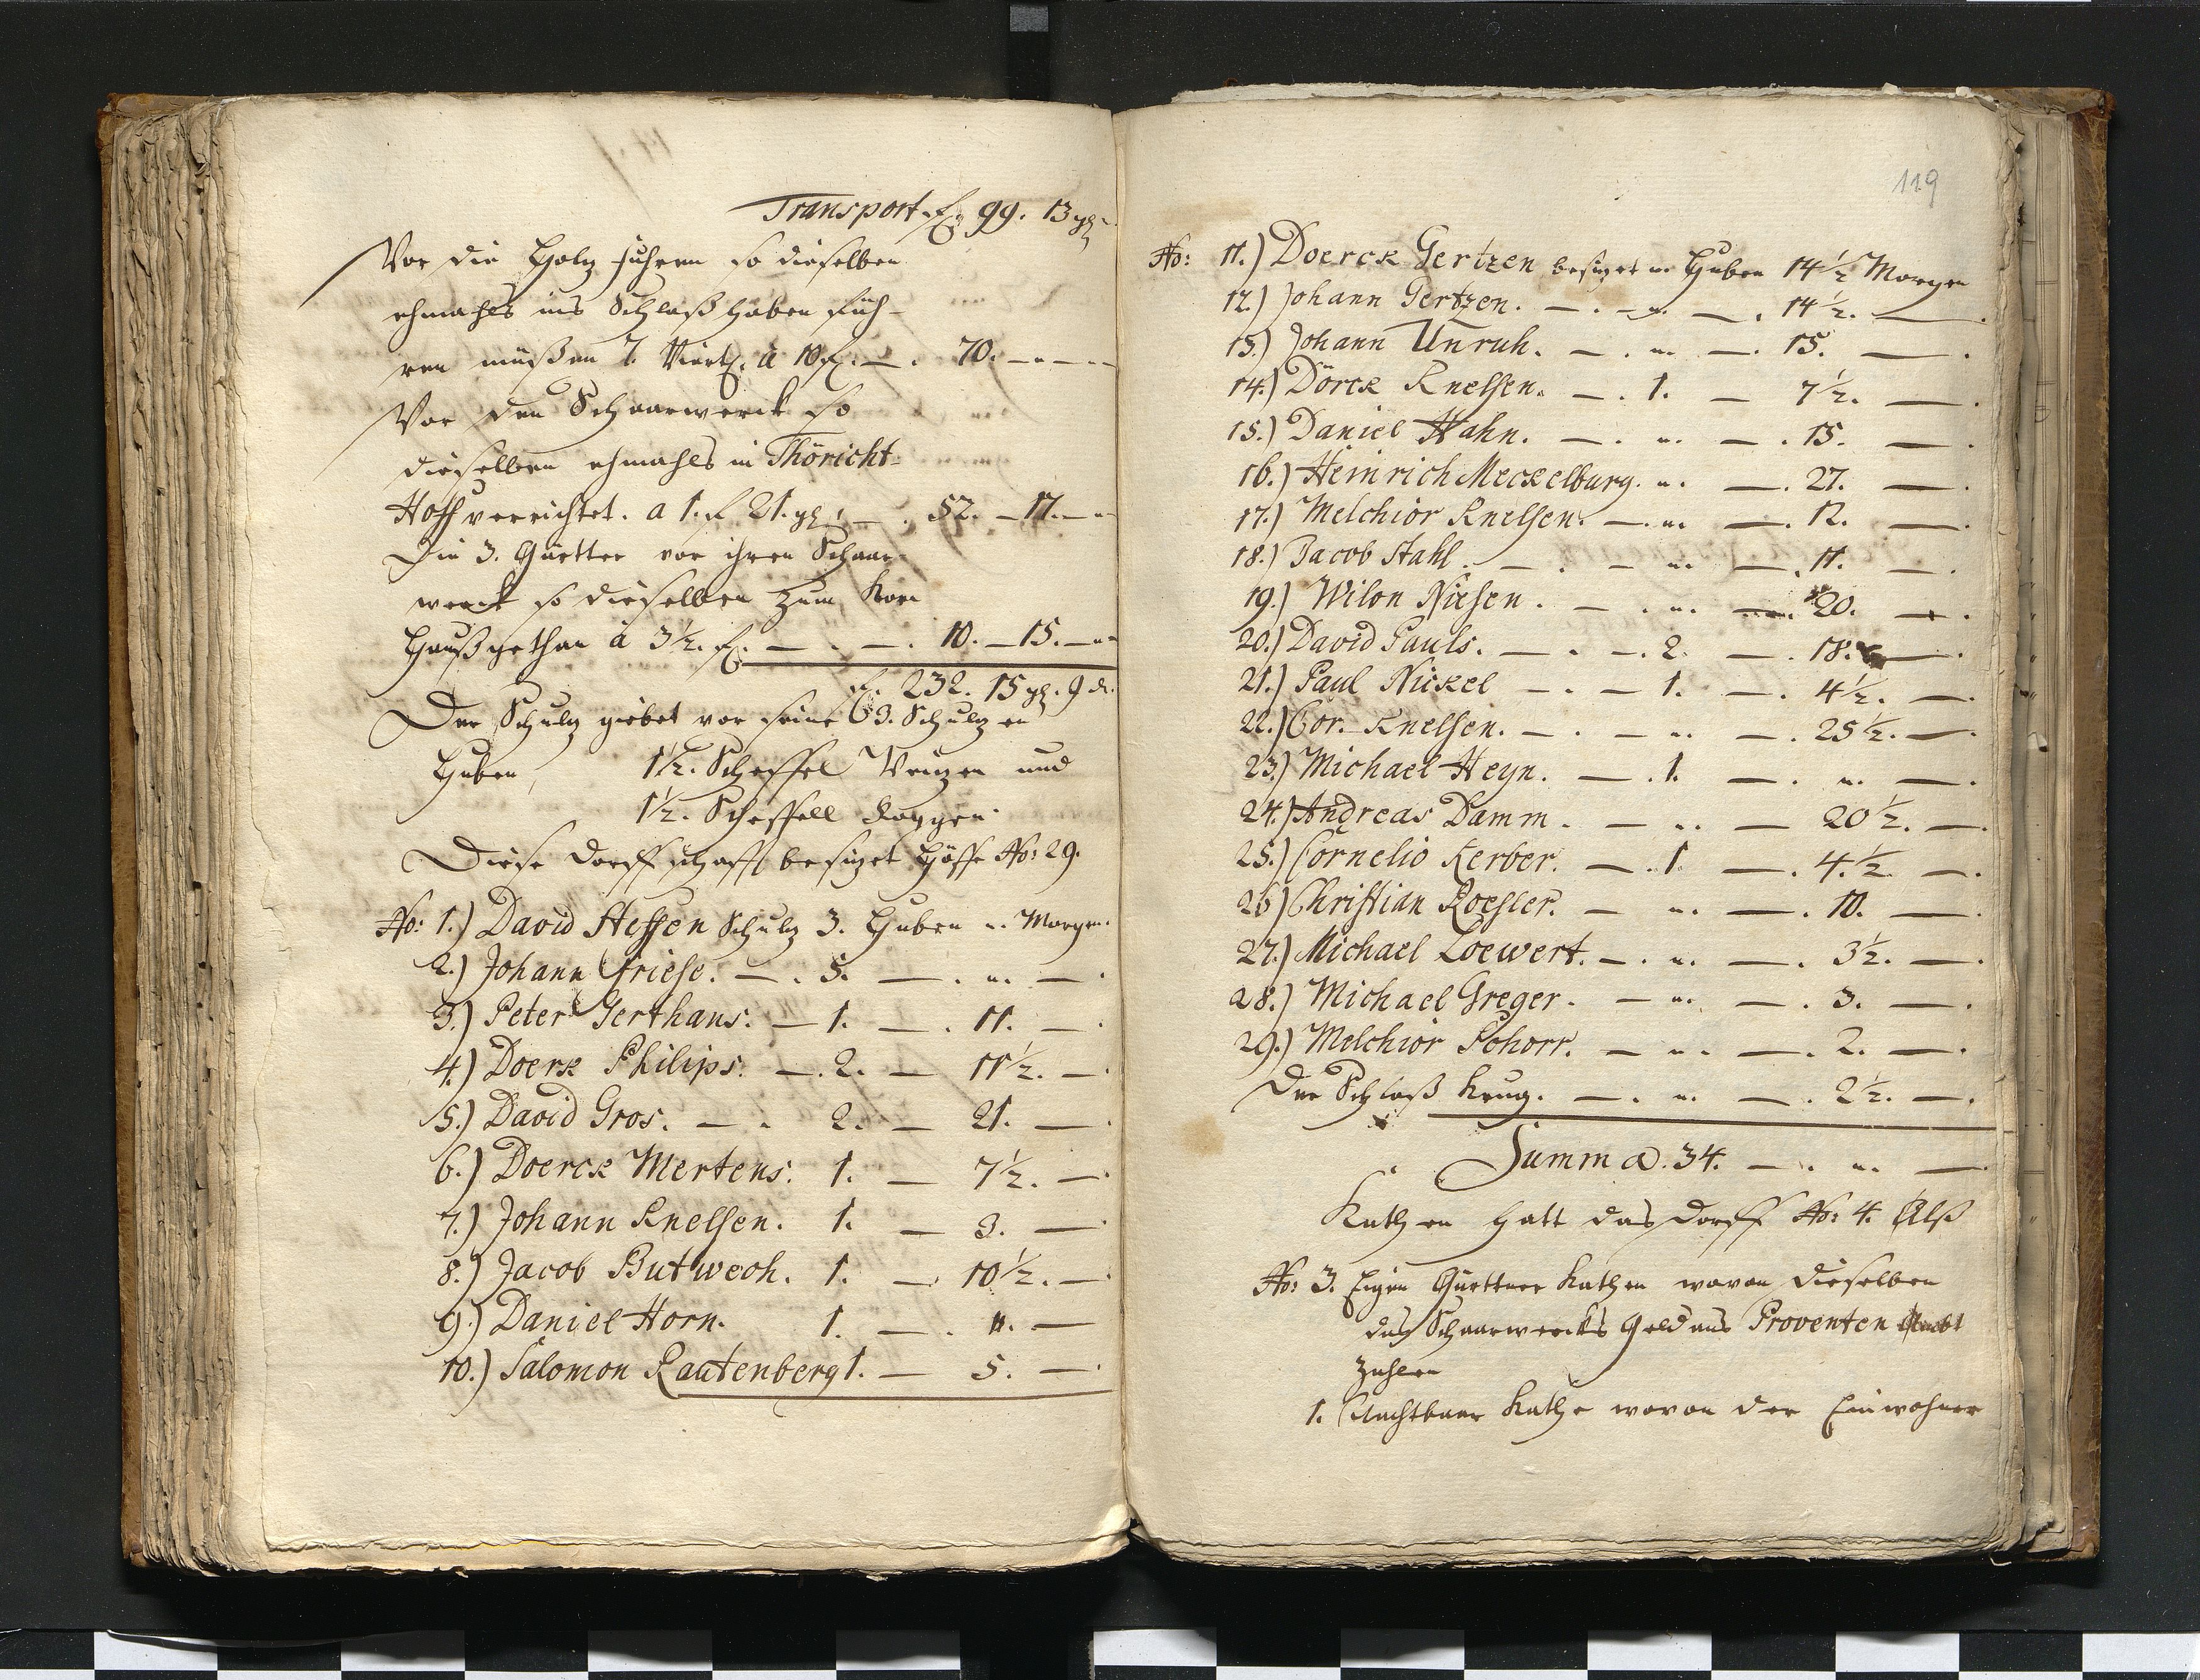 Transport f. 99. 13 gl
Vor die Holtz fuhren so dieselben
ehmahls ins Schloß haben füh-
ren müßen 7. Viertl. à 10 fl. — . 70. — " — "
Vor den Schaarwerck so
dieselben ehmahls in Thöricht-
Hoff verrichtet. a 1. f 21. gl — . 52. — 17. — "
Die 3. Gärtter vor ihren Schaar-
werck so dieselben zum
Hauß gethan à 3 1/2. fl. — . — . 10. — 15. — "
fl. 232. 15 gl. 9 d.
Der Schultz giebet vor seine 3. Schultzen
Huben, 1 1/2. Scheffel Weitzen und
1 1/2. Scheffell Roggen.
Diese Dorffschafft besitzet Höffe No: 29.
No: 1.) David Steffen Schultz 3. Huben " Morgen.
2.) Johann Friese. — . 5. — . " . — .
3.) Peter Gerthans. — 1. — . 11. — .
4.) Doerk Philips. — . 2. — 11 1/2. — .
5.) David Gros. — . 2. — 21. — .
6.) Doerck Mertens. 1. — 7 1/2. — .
7.) Johann Knelsen. 1. — 3. — .
8.) Jacob Butweoh. 1. — 10 1/2. — .
9.) Daniel Horn. 1. — . " . —
10.) Salomon Rautenberg 1. — 5. — .
119
No: 11.) Doerck Gertzen besitzet " Huben 14 1/2 Morgen
12.) Johann Gertzen. — . " . — . 14 1/2. — .
13.) Johann Unruh. — . " . — . 15. — .
14.) Dörck Knelsen. — . 1. — 7 1/2. — .
15.) Daniel Hahn. — . " . — . 15. — .
16.) Heinrich Meckelburg. " . — . 27. — .
17.) Melchior Knelsen. — . " . — . 12. — .
18.) Jacob Stahl. — . — " . — . 11. — .
19.) Wilon Niesen. — . " . — . 20. — .
20.) David Pauls. — . — . 2. — . 18. — .
21.) Paul Nickel — . — 1. — . 4 1/2. — .
22.) Cor. Knelsen. — . — " . — . 25 1/2. — .
23.) Michael Heyn. — . 1. — . " . — .
24.) Andreas Damm. — " . — 20 1/2. — .
25.) Cornelio Kerber. — . 1. — . 4. 1/2. — .
26.) Christian Roesler. — " . — . 10. — .
27.) Michael Loewert. — . " . — . 3 1/2. — .
28.) Michael Greger. — " . — . 3. — .
29.) Melchior Schorr. — " . — . 2. — .
Der Schloß Krug. — . " . — . 2 1/2. — .
Summa. 34. — . " . —
Kathen hatt das Dorff No: 4. Alß
No: 3. Eigen Gärttner Kathen wovon dieselben
das Schaarwercks Geld ans Proventen Ambt
zahlen
1. Nachtbaar Kathe wovon der Einwohner